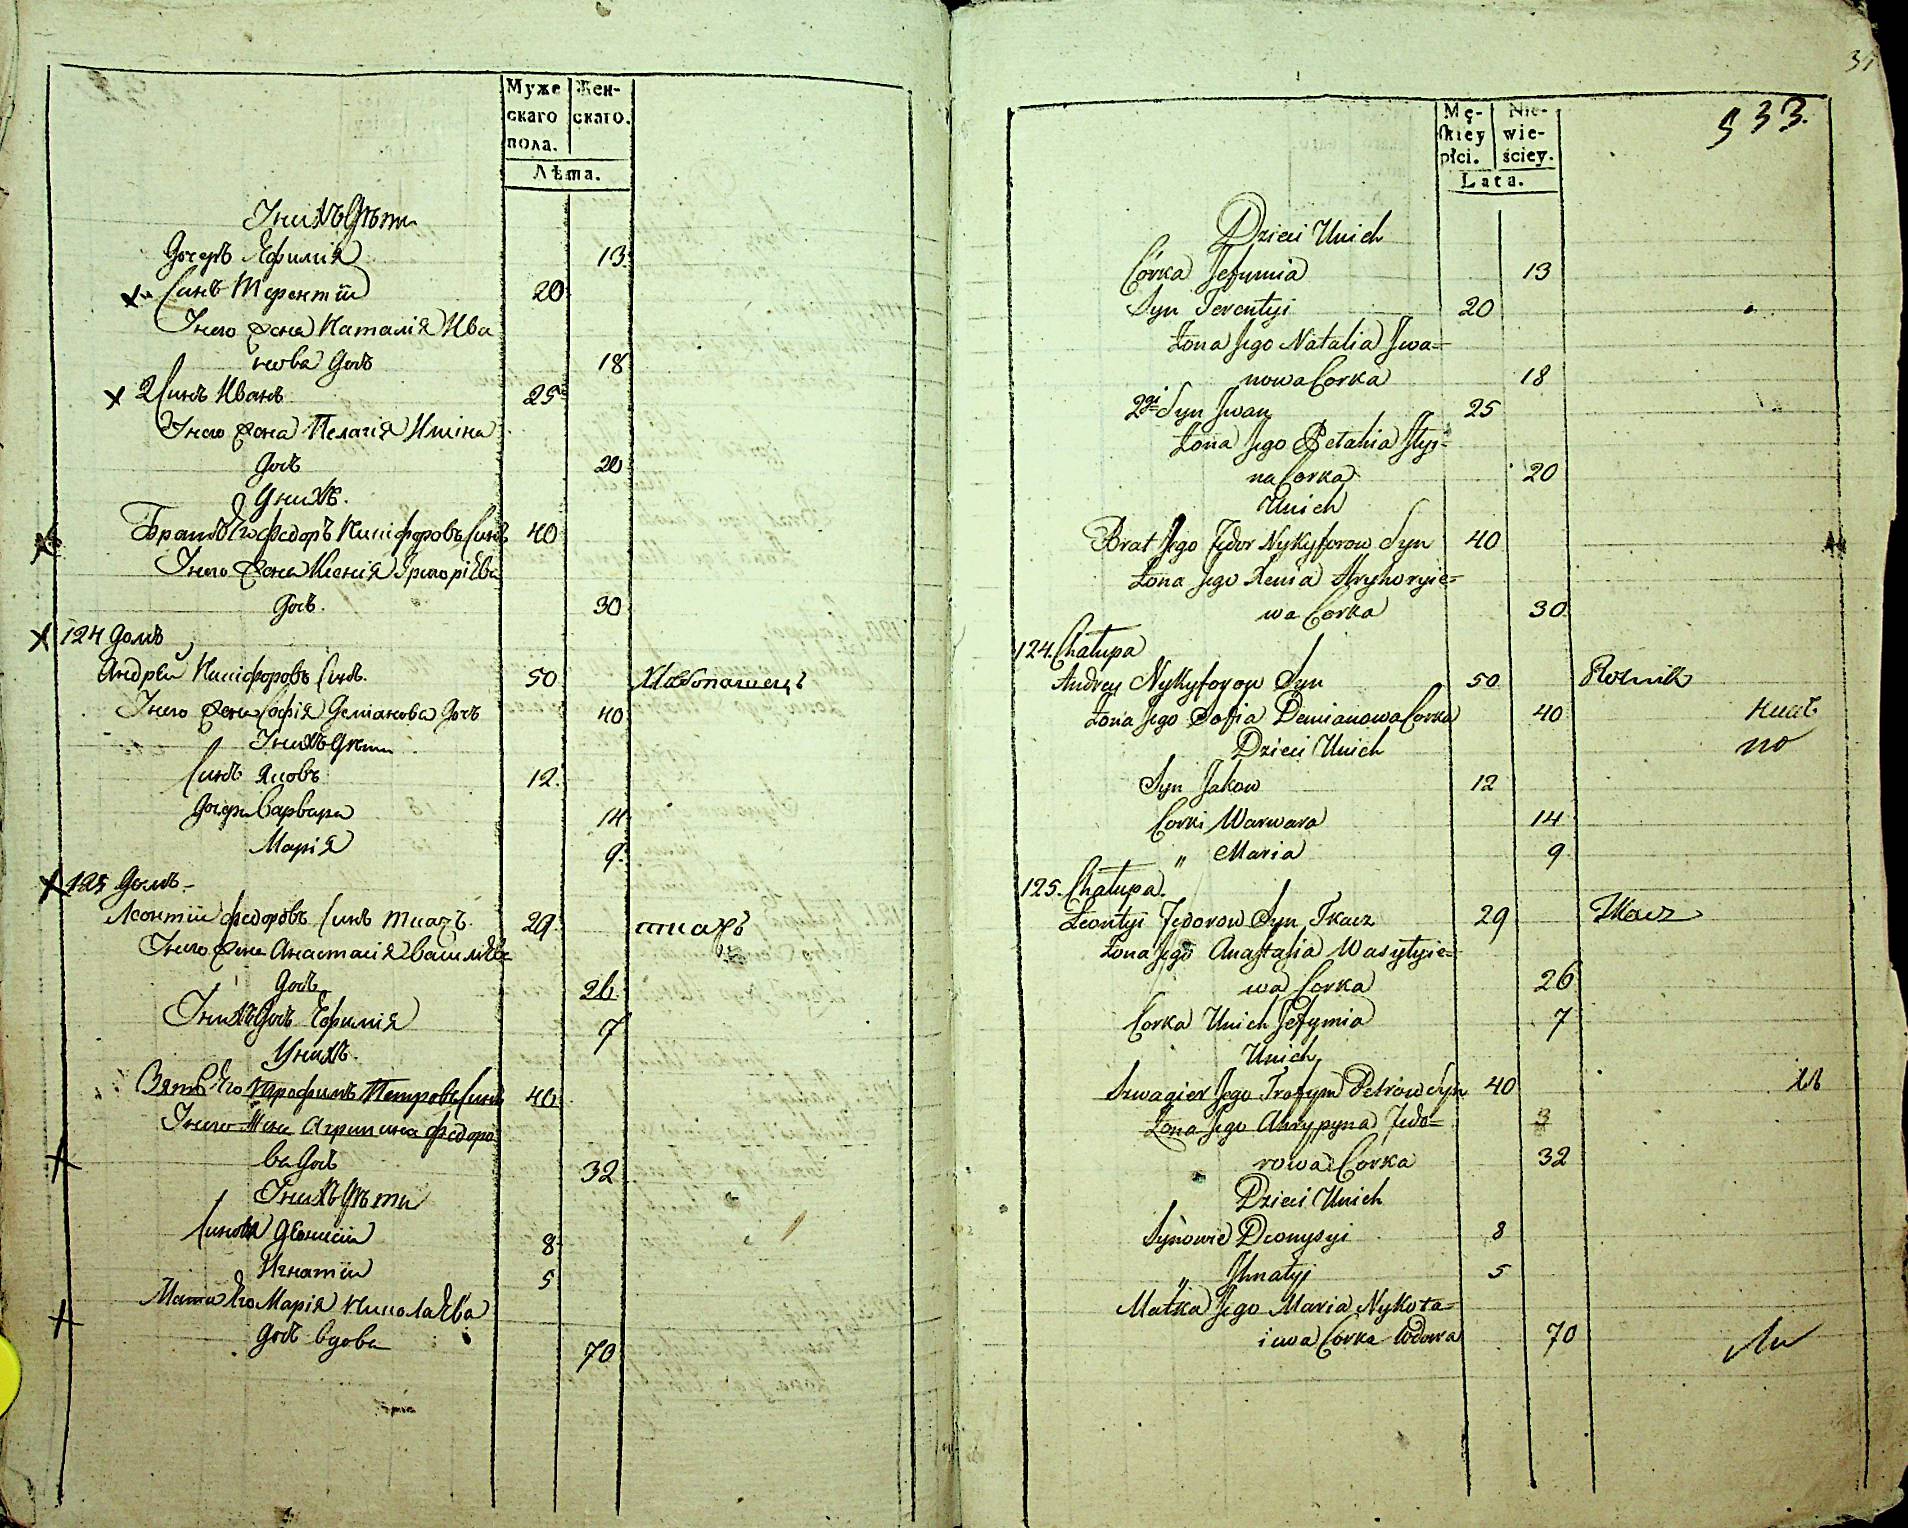 Муже
скаго
пола.
Жен-
скаго.
Лѣта.
У нихъ Дѣти
Дочерь Ефимія 13
Синъ Терентіи 20
У него Жена Наталія Ива
нова Доч 18
2 Синъ Иванъ 25
У него Жена Пелагія Илліна
Доч 20
У нихъ.
Братъ Его Федоръ Никифоровъ Синъ 40
У него Жена Ксенія Григоріева
Доч. 30
124 Домъ
Андрей Никифоровъ Синъ. 50 Хлебопашецъ
У него Жена Софія Деміанова Доч 40
У нихъ Дѣти
Синъ Яковъ 12
Дочери Варвара 14
Марія 9
125 Домъ
Леонтіи Федоровъ Синъ Ткачъ 29 ткачъ
У него Жена Анастасія Василіева
Доч. 26
У нихъ Доч Ефимія 7
У нихъ.
Зять Его Трофимъ Петровъ Синъ 40
У него Жена Агрипина Федоро
ва Доч 32
У нихъ Дѣти
Синовя Діонисіи 8
Игнатіи 5
Мати Его Марія Николаева
Доч вдова 70
533.
Mę-
skiey
płci.
Nie-
wie-
ściey.
Lata.
Dzieci Unich
Córka Jefymia 13
Syn Terentyi 20
Żona Jego Natalia Jwa=
nowa Corka 18
2gi Syn Jwan 25
Żona Jego Pelahia Jlyi=
na Corka 20
Unich
Brat Jego Fedor Nykyforow Syn 40
Żona Jego Xenia Hryhoryie=
wa Corka 30
124. Chałupa
Andrey Nykyforow Syn 50 Rolnik
Żona Jego Sofia Demianowa Corka 40
Dzieci Unich
Syn Jakow 12
Corki Warwara 14
" Maria 9
125. Chałupa.
Leontyi Fedorow Syn Tkacz 29 Tkacz
Żona Jego Anastasia Wasylyie=
wa Corka 26
Corka Unich Jefymia 7
Unich
Szwagier Jego Trofym Petrow Syn 40
Żona Jego Ahrypyna Fedo=
rowa Corka 32
Dzieci Unich
Synowie Dionysyi 8
" Jhnatyj 5
Matka Jego Maria Nykoła=
iewa Corka Wdowa 70